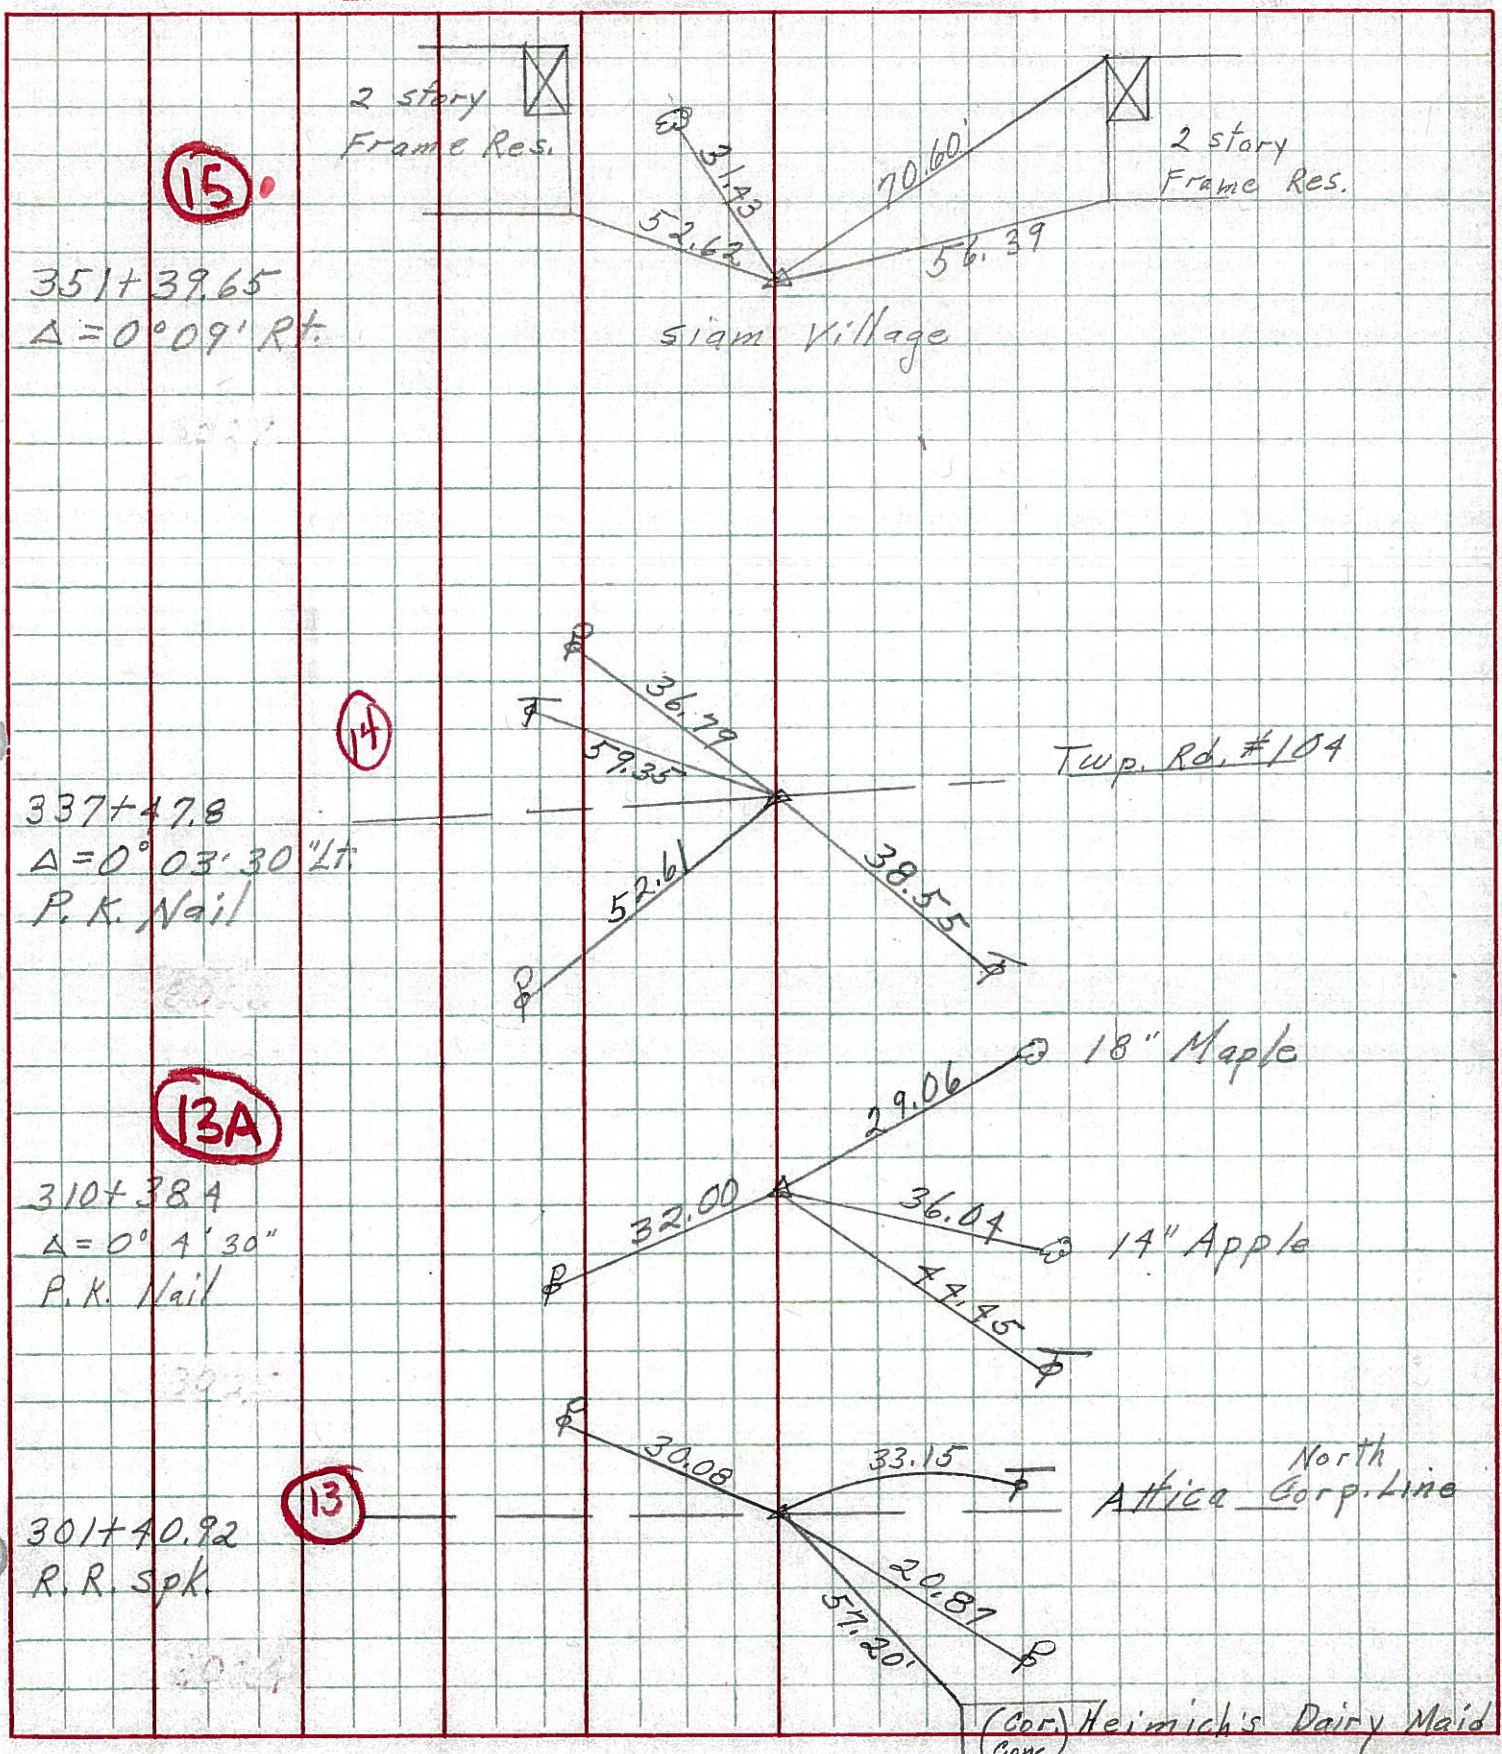 2 story
Frame Res.
15
31.43
70.60'
2 story
Frame Res.
52.62
56.39
351+39.65
Δ=0°09' Rt.
Siam Village
36.79
14
59.35
Twp. Rd. #104
337+47.8
Δ=0°03'30"Lt.
P.K. Nail
52.61
38.55
18" Maple
29.06
13A
310+38.4
Δ=0°4'30"
P.K. Nail
32.00
36.04
14" Apple
44.45
30.08
33.15
North
Attica Corp. Line
13
301+40.92
R.R. Spk.
20.87
57.20'
(Cor.) Heimich's Dairy Maid
Conc